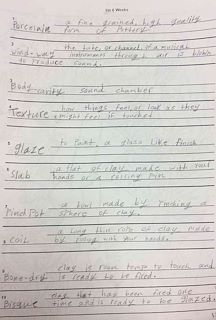 6 Weeks
1 Porcelain a fine grained, high quality form of Pottery
2 wind-way the tube, or channel, of a musical instrument through air is blown to produce sound.
3 Body-cavity sound chamber
4 Texture how things feel, or look as they might feel if touched
5 glaze to paint, a glass like finish
6 Slab a flat of clay made with your hands or a rolling pin
7 Pinch Pot a bowl made by Pinching a sphere of clay.
8 Coil a long thin rope of clay made by rolling with your hands.
9 Bone-dry clay is room temp to touch and is ready to be fired.
10 Bisque clay that has been fired one time and is ready to be glazed.